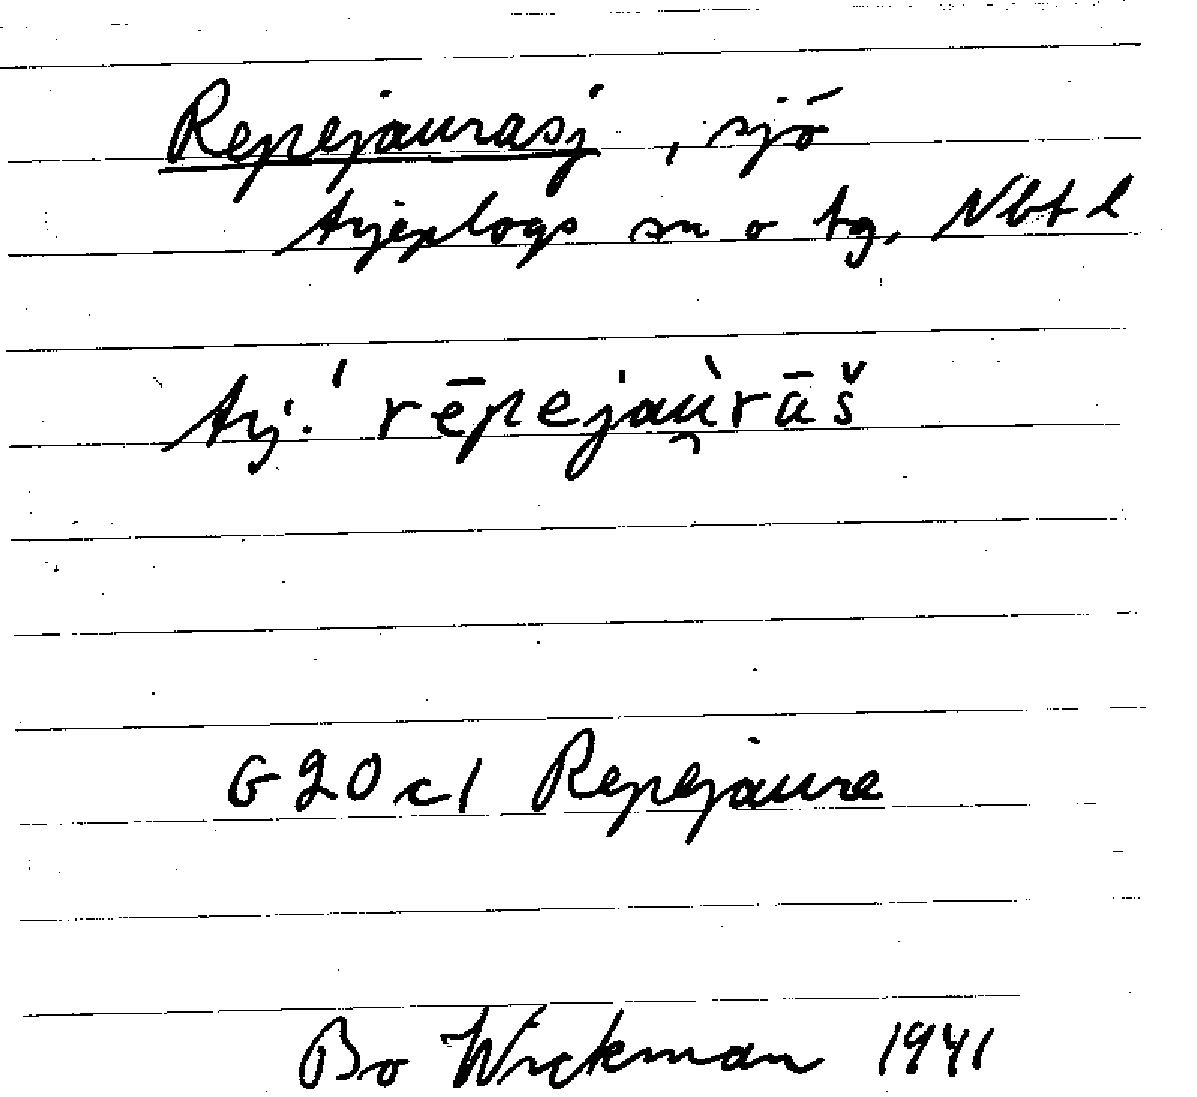 Repejaurasj, sjö
Arjeplogs sn o tg, Nbt l
Arj. ˈrēpejau̯ˋrāš
G20c1 Repejaure
Bo Wickman 1941